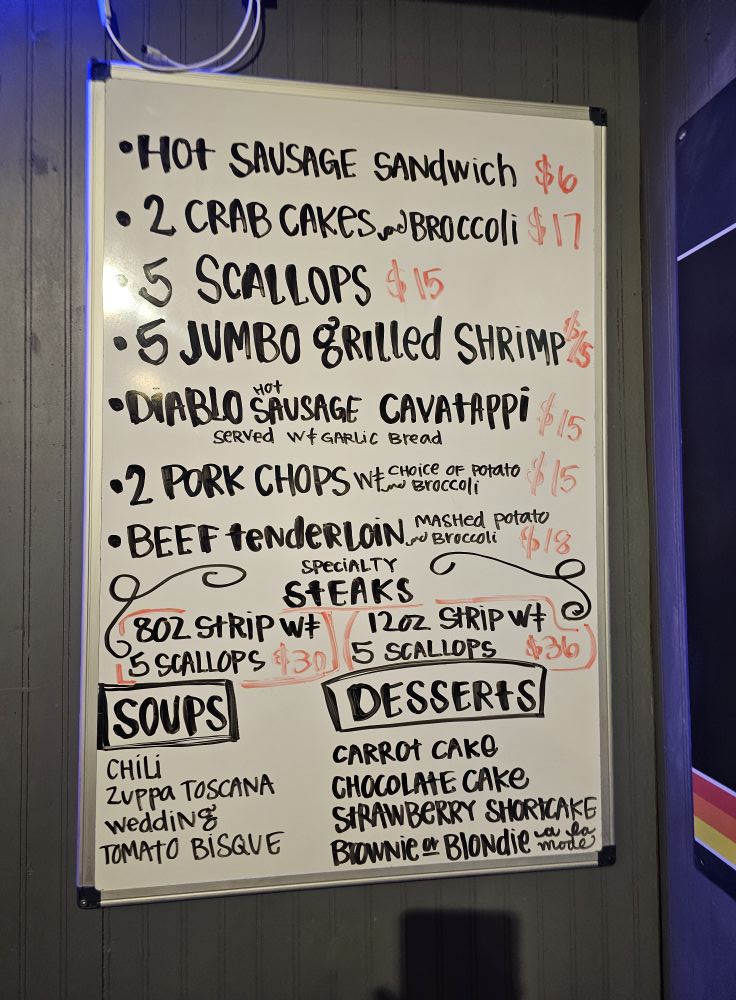 • HOt SAUSAGE SANdwicH $6
• 2 CRAB CAKES and BROCCOLi $17
• 5 SCALLOPS $15
• 5 JUMBO gRilled SHRIMP $15
• DiABLO HOt SAUSAGE CAVAtAPPi $15
SERVED Wt GARLIC BREAD
• 2 PORK CHOPS Wt CHOICE OF POtAtO and BROCCOLi $15
• BEEF tENdERLOiN MASHED POtAtO and BROCCOLi $18
SPECiALTY
StEAKS
8OZ StRiP Wt
5 SCALLOPS $30
12OZ StRiP Wt
5 SCALLOPS $36
SOUPS
CHiLi
ZUPPA TOSCANA
weddiNg
TOMAtO BiSQUE
DESSERtS
CARROt CAKe
CHOCOLAtE CAKe
StRAWBERRY SHORtCAKE
BROWNiE or BLONdie a la mode